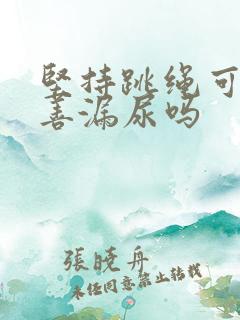 坚持跳绳可
善漏尿吗
張曉舟
未经同意禁止转载